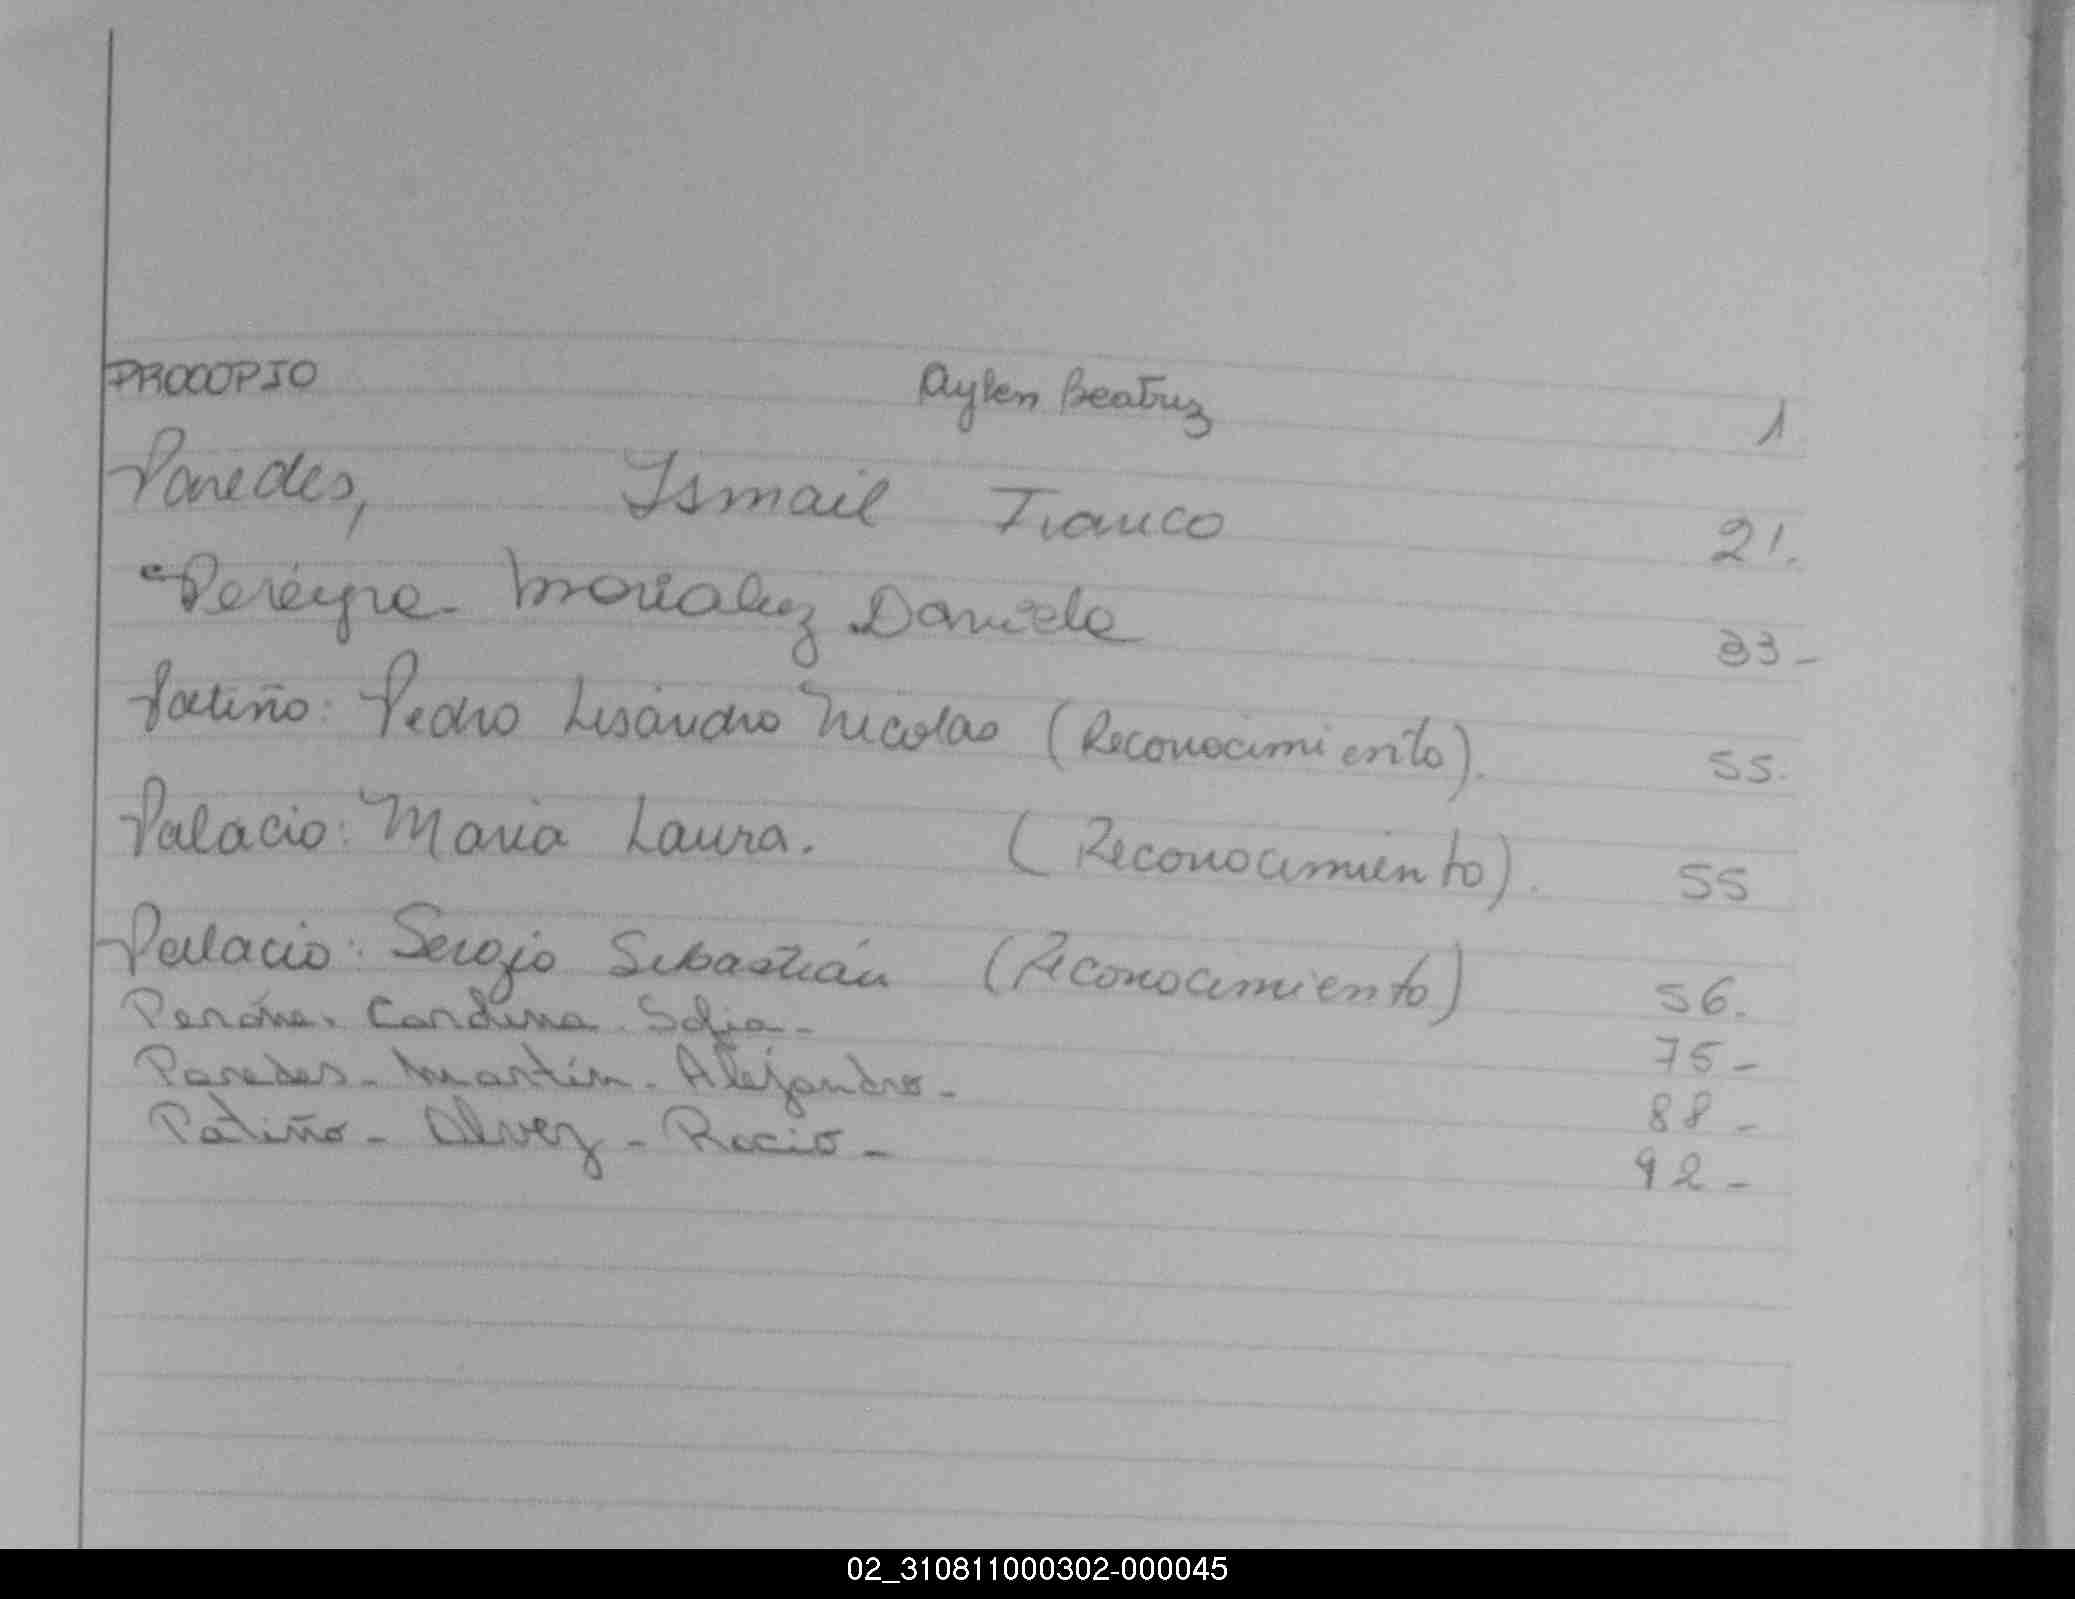 PROCOPIO Aylen Beatriz 1
Paredes, Ismail Franco 21.
Pereyra - Marialuz Daniela 33 -
Patiño: Pedro Lisandro Nicolas (Reconocimiento). 55.
Palacio: Maria Laura. (Reconocimiento). 55
Palacio: Sergio Sebastián (Reconocimiento) 56.
Sofia - 75 -
Paredes - Martín - Alejandro - 88 -
Patiño - Alvez - Rocio - 92 -
02_310811000302-000045